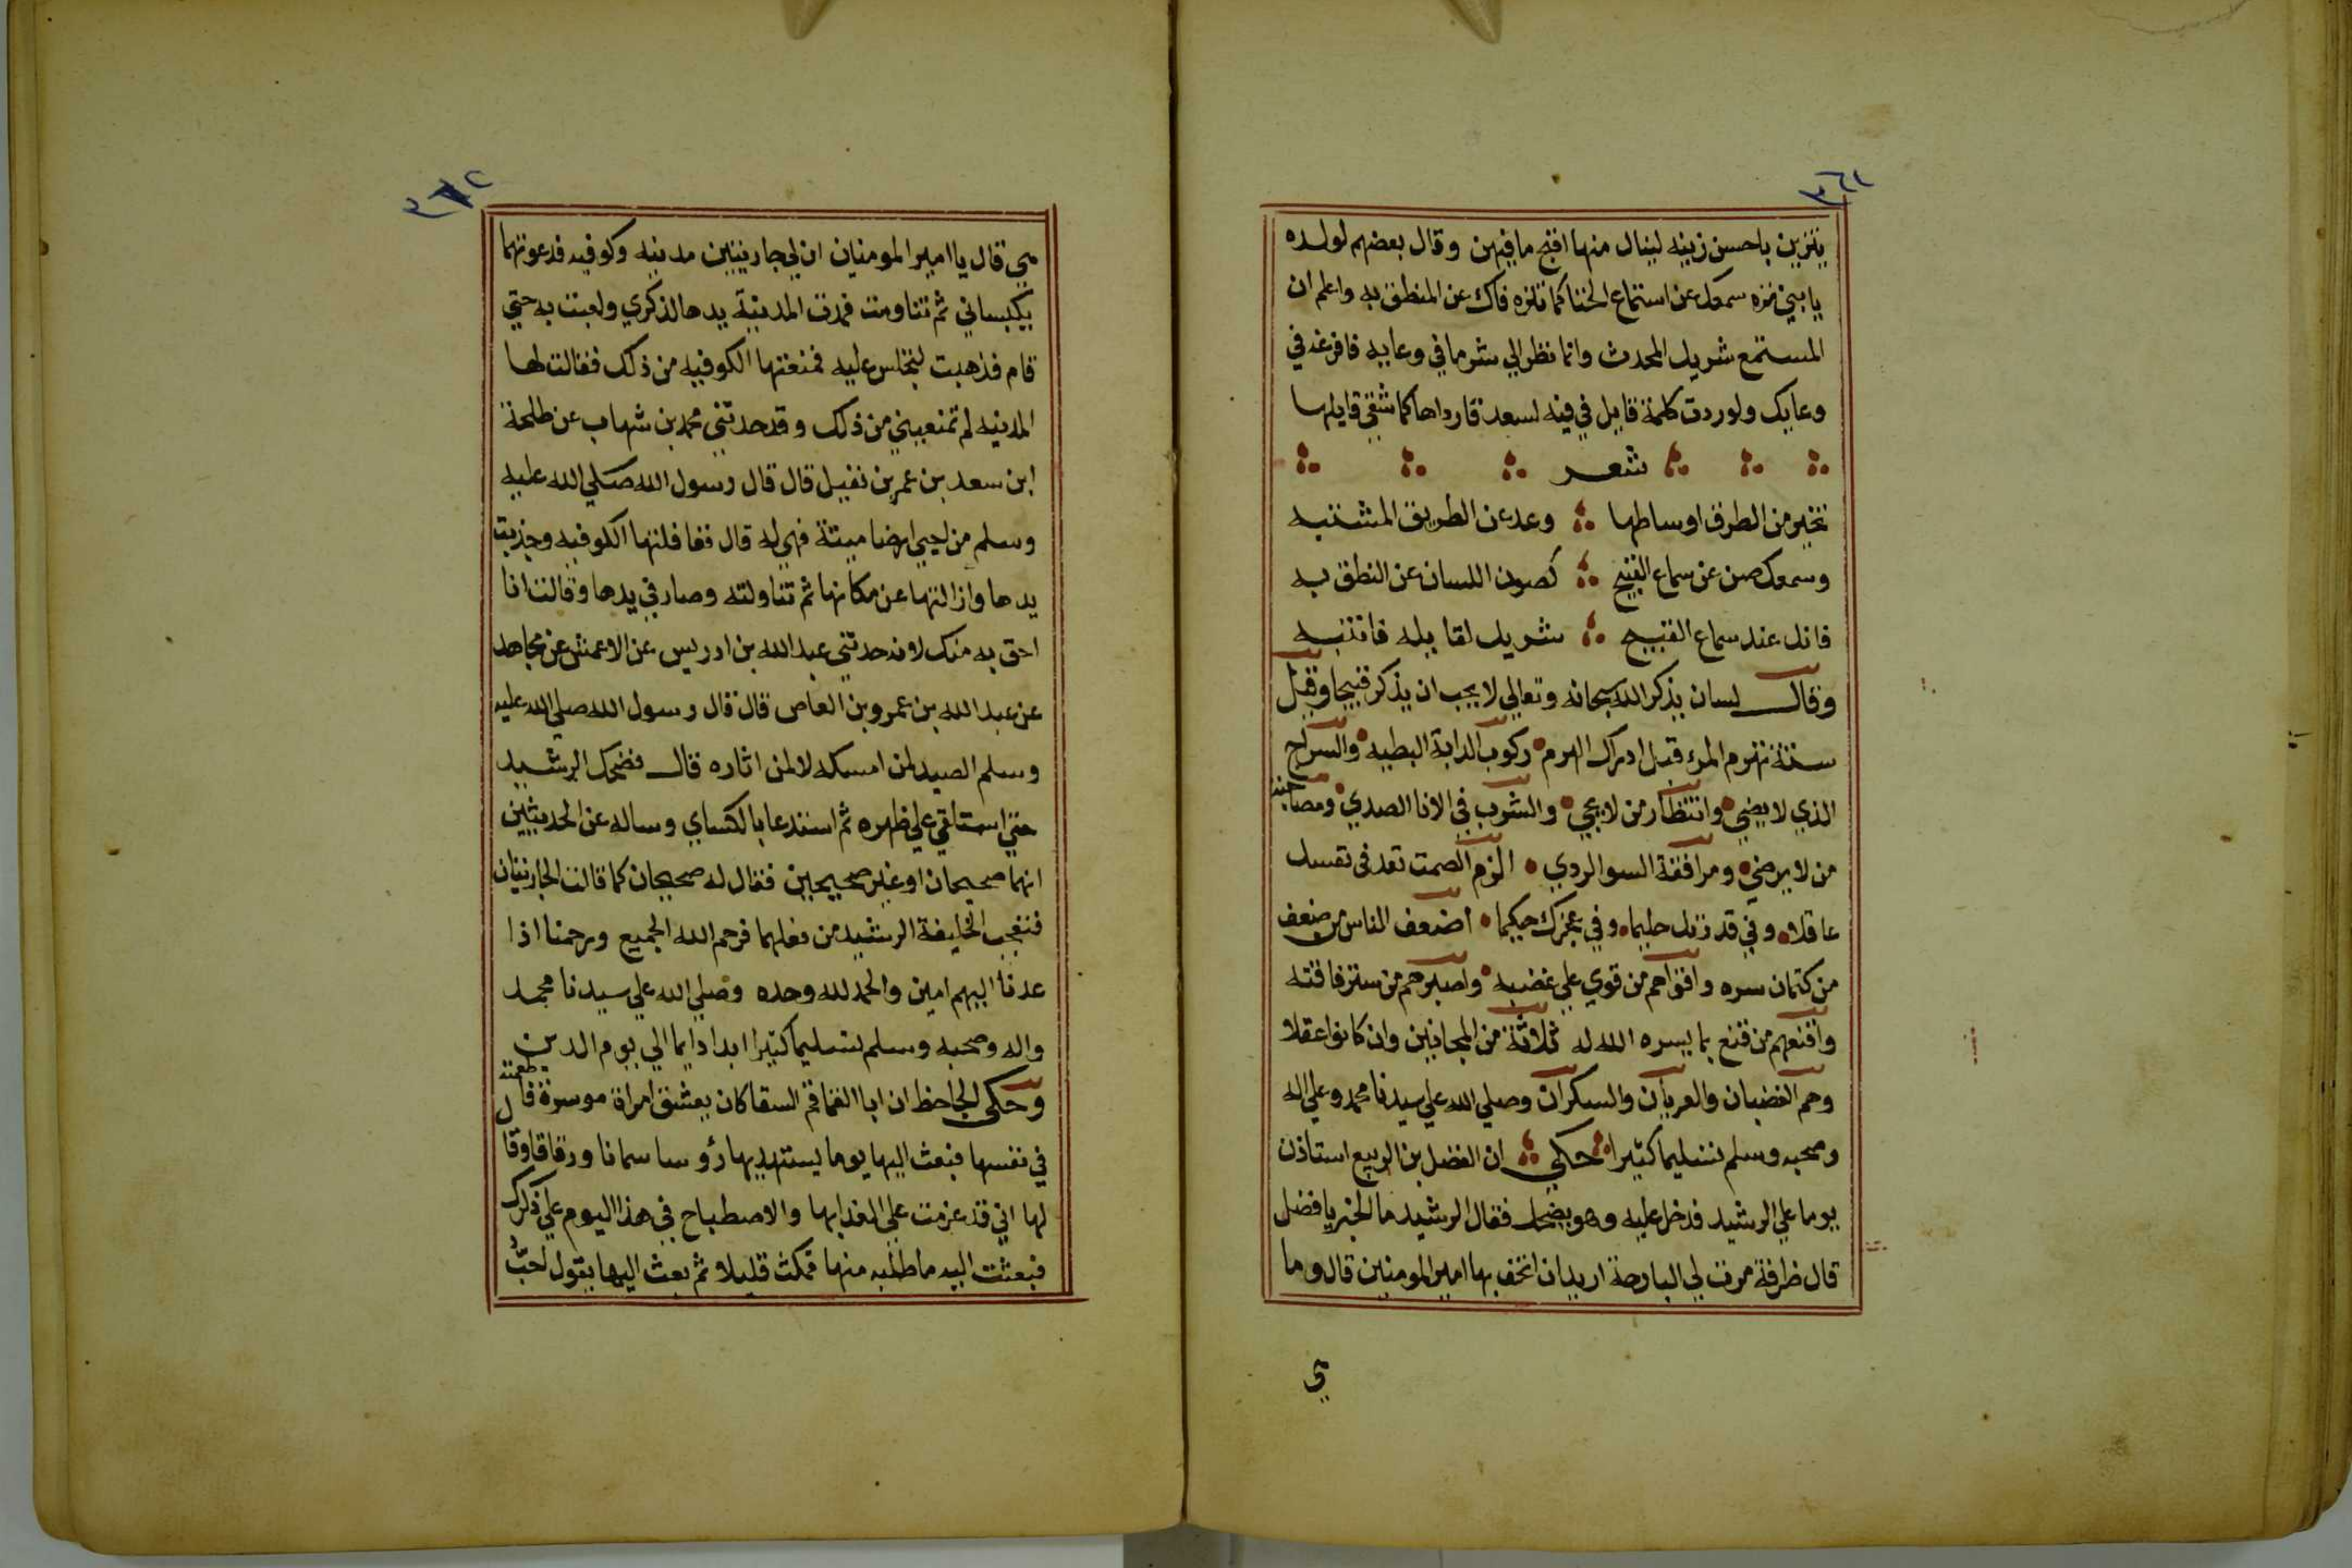 ٣٦١
يتزين باحسن زينه لينال منها اقبح ما فيهن وقال بعضهم لولده
يا بني نزه سمعك عن استماع الخنا كما تنزه فاك عن المنطق به واعلم ان
المستمع شريك المحدث وانما نظر الي شر ما في وعايه فافرغه في
وعايك ولو ردت كلمة قايل في فيه لسعد قارداها كما شقي قايلها
شعر
تخير من الطرف اوساطها وعد عن الطريق المشتبه
وسمعك صن عن سماع القبيح كصون اللسان عن النطق به
فانك عند سماع القبيح شريك لقايله فانتبه
وقال لسان يذكر الله سبحانه وتعالي لا يجب ان يذكر قبيحا وقيل
ستة تهرم المرء قبل ادراك الهرم ركوب الدابة البطيه والسراج
الذي لا يضي وانتظار من لا يجي والشرب في الانا الصدي ومصاحبة
من لا يرضي ومرافقة السو الردي الزم الصمت تعد في نفسك
عاقلا وفي قدرتك حليما وفي عجزك حكيما اضعف الناس من ضعف
من كتمان سره واقواهم من قوي علي غضبه واصبرهم من ستر فاقته
واقنعهم من قنع بما يسره الله له ثلاثة من المجانين وان كانوا عقلا
وهم الغضبان والعريان والسكران وصلي الله علي سيدنا محمد وعلي اله
وصحبه وسلم تسليما كثيرا حكي ان الفضل بن الربيع استاذن
يوما علي الرشيد فدخل عليه وهو يضحك فقال الرشيد ما الخبر يا فضل
قال طرفة مرت لي البارحة اريد ان اتحف بها امير المومنين قال وما
هي
٣٦٢
هي قال يا امير المومنين ان لي جاريتين مدنيه وكوفيه فدعوتهما
يكبساني ثم تناومت فمدت المدنية يدها لذكري ولعبت به حتي
قام فذهبت لتجلس عليه فمنعتها الكوفيه من ذلك فقالت لها
المدنيه لم تمنعيني من ذلك وقد حدثني محمد بن شهاب عن طلحة
ابن سعد بن عمر بن نفيل قال قال رسول الله صلي الله عليه
وسلم من احيي ارضا ميتة فهي له قال فغافلتها الكوفيه وجذبت
يدها وازالتها عن مكانها ثم تناولته وصار في يدها وقالت انا
احق به منك لانه حدثني عبد الله بن ادريس عن الاعمش عن مجاهد
عن عبد الله بن عمرو بن العاص قال قال رسول الله صلي الله عليه
وسلم الصيد لمن امسكه لا لمن اثاره قال فضحك الرشيد
حتي استلقي علي ظهره ثم استدعا بالكساي وساله عن الحديثين
انهما صحيحان او غير صحيحين فقال له صحيحان كما قالت الجاريتان
فتعجب الخليفة الرشيد من فعلهما فرحم الله الجميع ورحمنا اذا
عدنا اليهم امين والحمد لله وحده وصلي الله علي سيدنا محمد
واله وصحبه وسلم تسليما كثيرا ابدا دايما الي يوم الدين
وحكي الجاحظ ان ابا القماقم السقا كان يعشق امراة موسرة فاطمعته
في نفسها فبعث اليها يوما يستهديها رؤسا سمانا ورقاقا وقال
لها اني قد عزمت علي الغدا بها والاصطباح في هذا اليوم علي ذكرك
فبعثت اليه ما طلبه منها فمكث قليلا ثم بعث اليها يقول احب